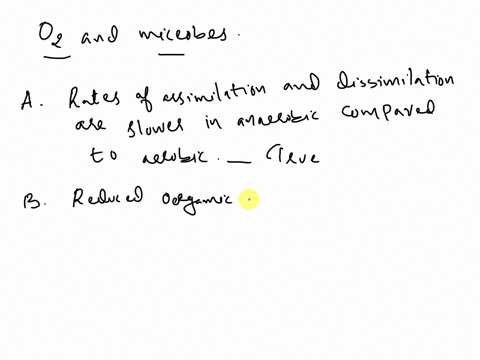 O2 and microbes.
A. Rates of assimilation and dissimilation
are slower in anaerobic compared
to aerobic. _ True
B. Reduced Oorganic